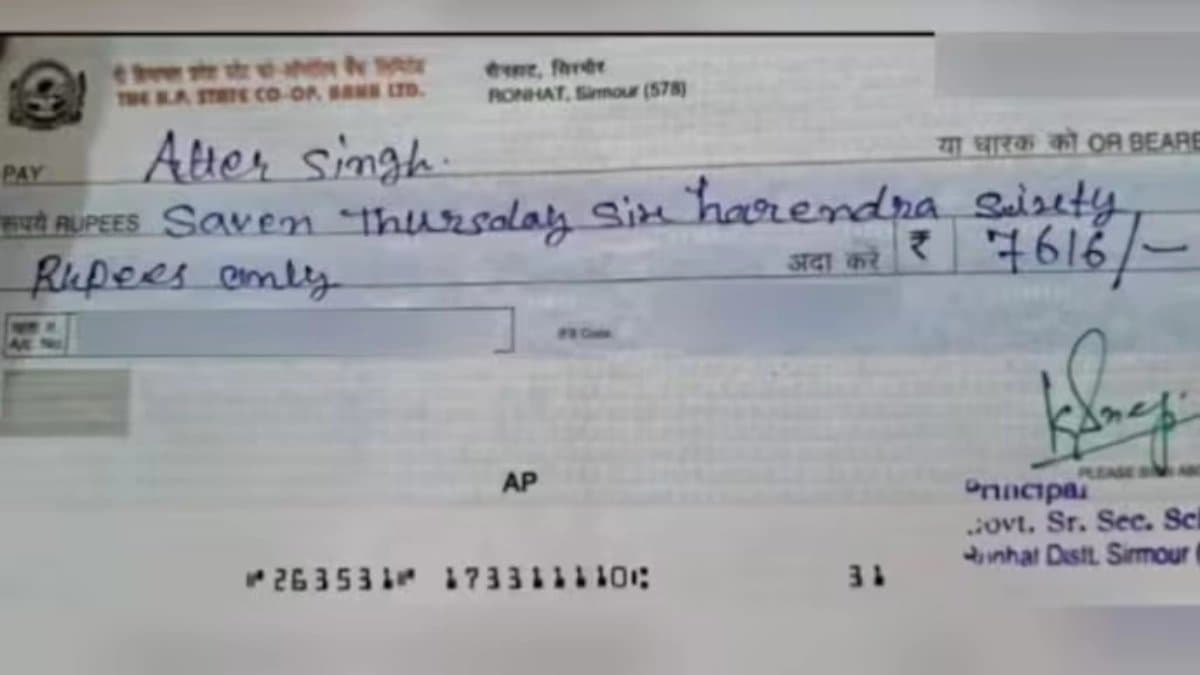 THE H.P. STATE CO-OP. BANK LTD.
रोनहाट, सिरमौर
RONHAT, Sirmour (578)
PAY Atter Singh.
या धारक को OR BEARE
रूपये RUPEES Saven Thursday Six harendra Sixty
Rupees only
अदा करें ₹ 7616/-
A/C No.
IFS Code
AP
Principal
Govt. Sr. Sec. Sc
Ronhat Distt. Sirmour (
⑈263531⑈ 173311110⑆ 31